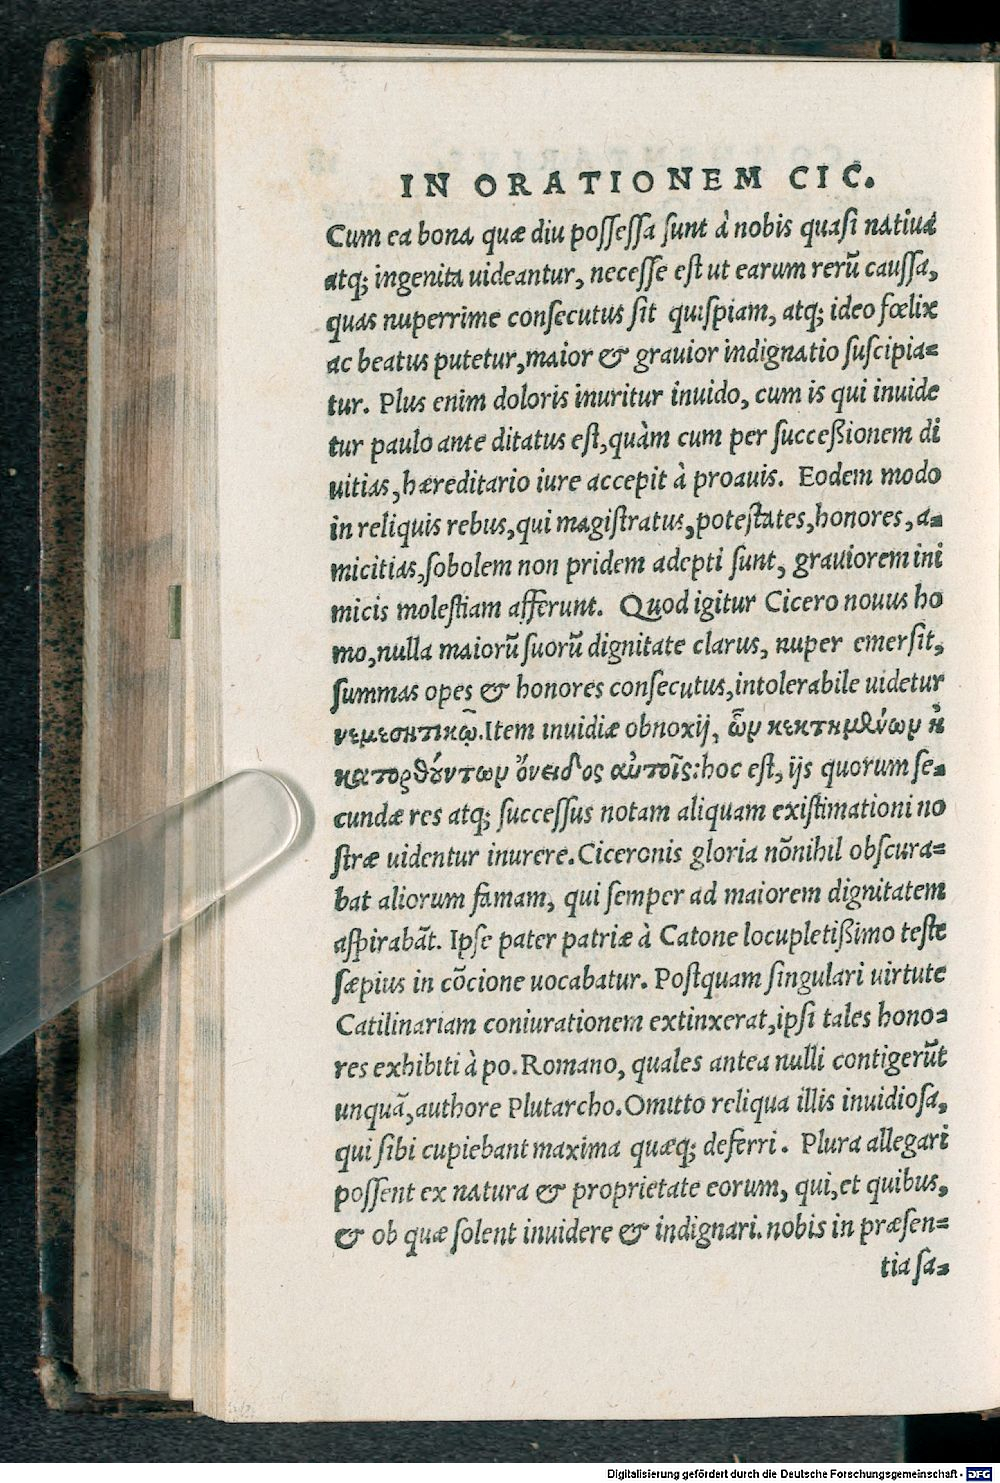 IN ORATIONEM CIC.
Cum ea bona quæ diu poſſeſſa ſunt à nobis quaſi natiua
atq; ingenita uideantur, neceſſe eſt ut earum rerū cauſſa,
quas nuperrime conſecutus ſit quiſpiam, atq; ideo fœlix
ac beatus putetur, maior & grauior indignatio ſuſcipia=
tur. Plus enim doloris inuritur inuido, cum is qui inuide
tur paulo ante ditatus eſt, quàm cum per ſucceßionem di
uitias, hæreditario iure accepit à proauis. Eodem modo
in reliquis rebus, qui magiſtratus, poteſtates, honores, a=
micitias, ſobolem non pridem adepti ſunt, grauiorem ini
micis moleſtiam afferunt. Quod igitur Cicero nouus ho
mo, nulla maiorū ſuorū dignitate clarus, nuper emerſit,
ſummas opes & honores conſecutus, intolerabile uidetur
νεμεσητικῷ. Item inuidiæ obnoxij, ὧν κεκτημένων ἢ
κατορθούντων ὄνειδος αὐτοῖς: hoc eſt, ijs quorum ſe=
cundæ res atq; ſucceſſus notam aliquam exiſtimationi no
ſtræ uidentur inurere. Ciceronis gloria nōnihil obſcura=
bat aliorum famam, qui ſemper ad maiorem dignitatem
aſpirabāt. Ipſe pater patriæ à Catone locupletißimo teſte
ſæpius in cōcione uocabatur. Poſtquam ſingulari uirtute
Catilinariam coniurationem extinxerat, ipſi tales hono=
res exhibiti à po. Romano, quales antea nulli contigerūt
unquā, authore Plutarcho. Omitto reliqua illis inuidioſa,
qui ſibi cupiebant maxima quæq; deferri. Plura allegari
poſſent ex natura & proprietate eorum, qui, et quibus,
& ob quæ ſolent inuidere & indignari. nobis in præſen=
tia ſa=
Digitalisierung gefördert durch die Deutsche Forschungsgemeinschaft - DFG